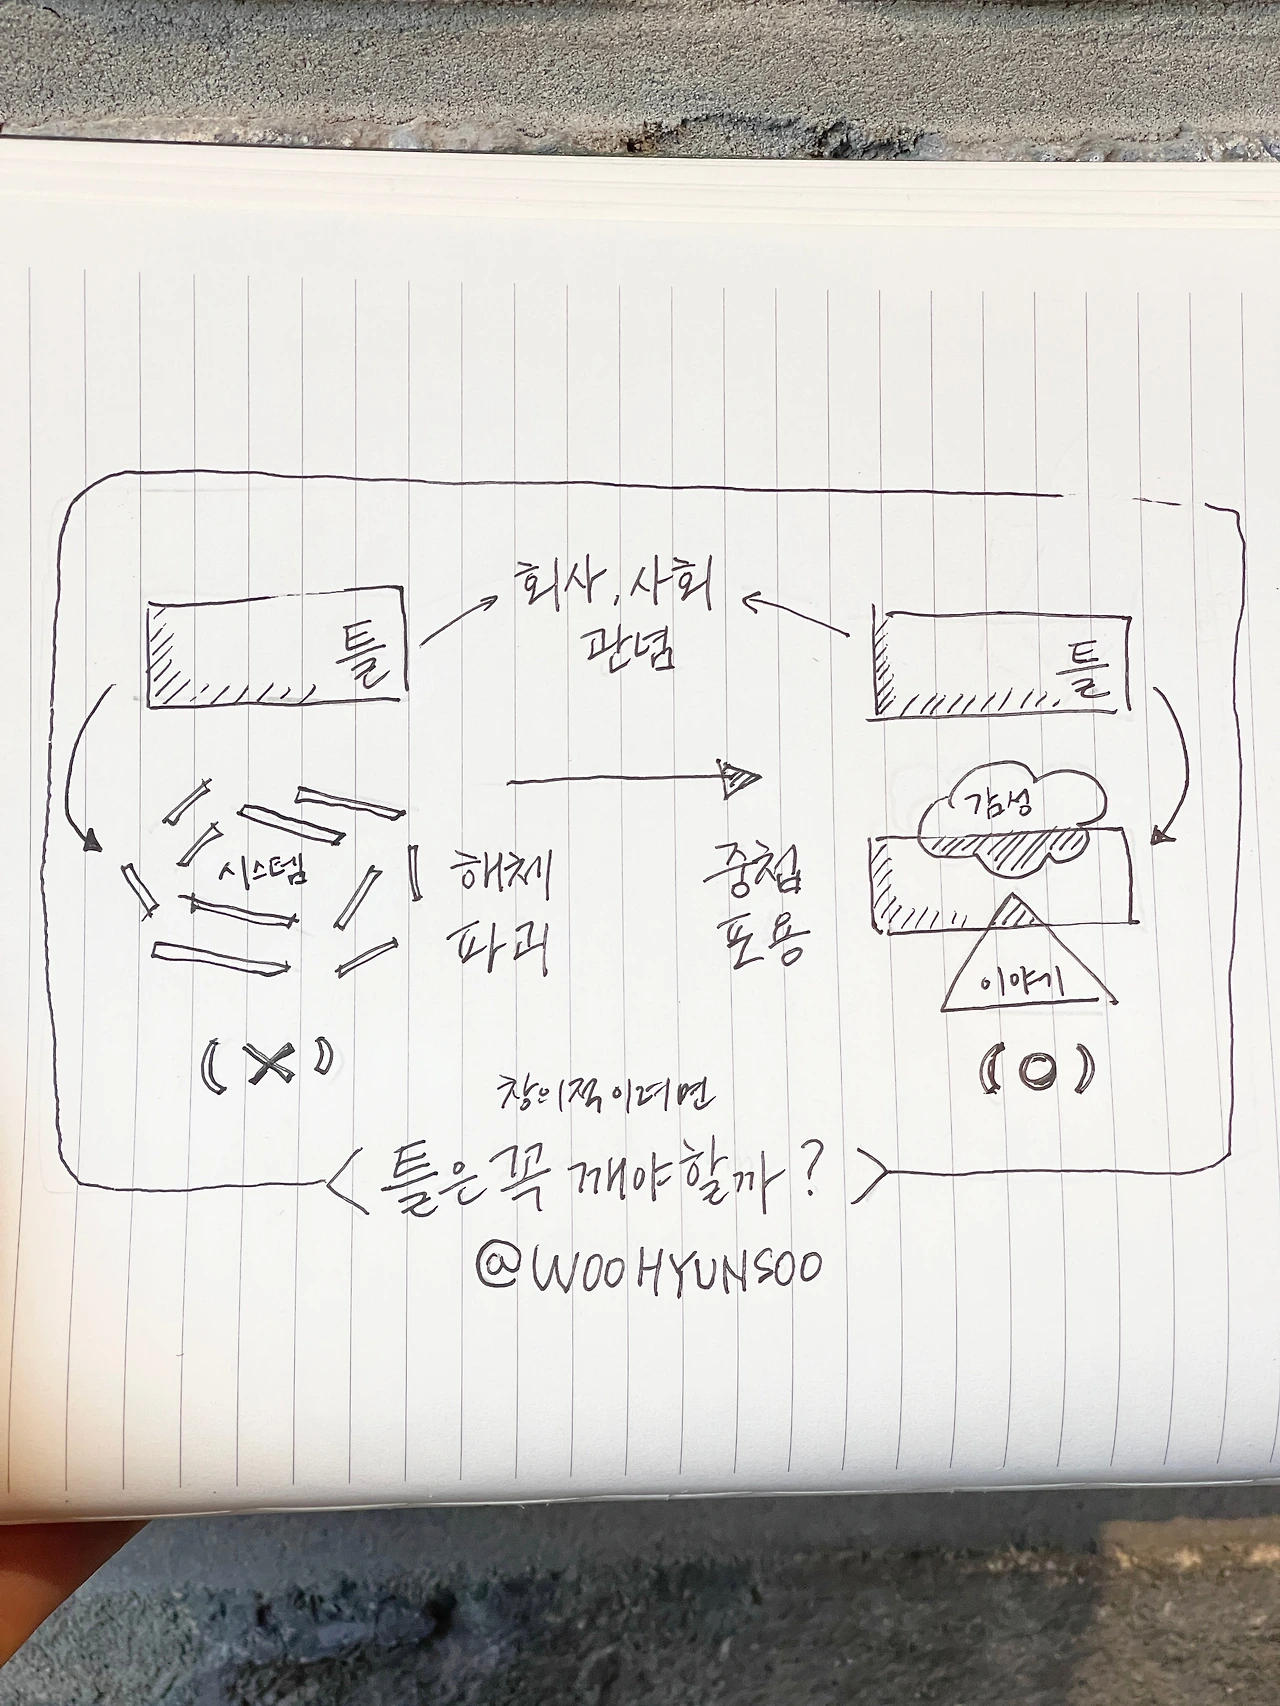 회사, 사회
관념
틀
틀
시스템
해체
파괴
중첩
포용
감성
이야기
(X)
(O)
창의적이려면
<틀은 꼭 깨야할까?>
@WOOHYUNSOO